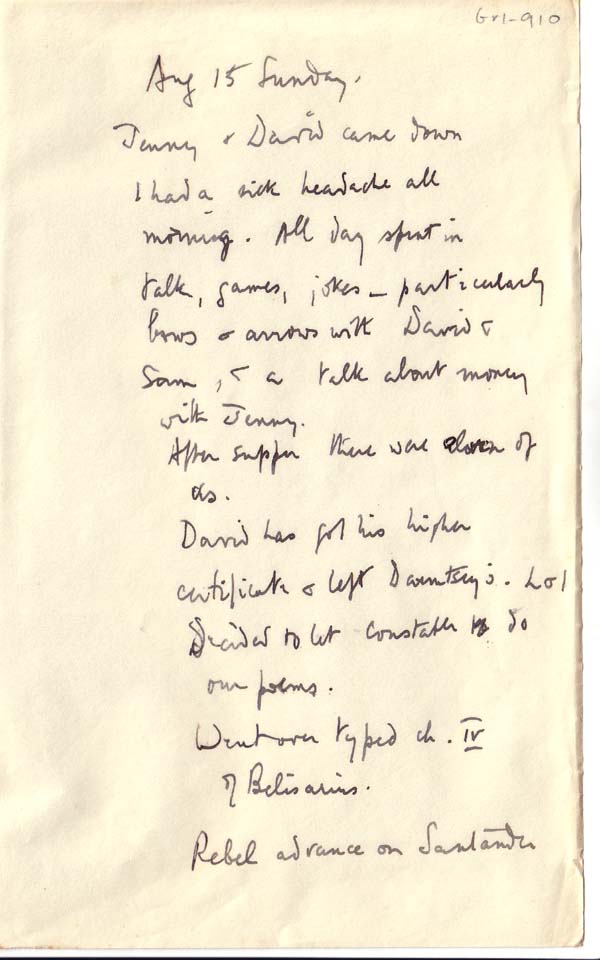 Gr1-910
Aug 15 Sunday.
Jenny & David came down
I had a sick headache all
morning. All day spent in
talk, games, jokes – particularly
bows & arrows with David &
Sam, & a talk about money
with Jenny.
After supper there were eleven of
us.
David has got his higher
certificate & left Dauntsey's. L & I
Decided to let Constable do
our poems.
Went over typed ch. IV
of Belisarius.
Rebel advance on Santander